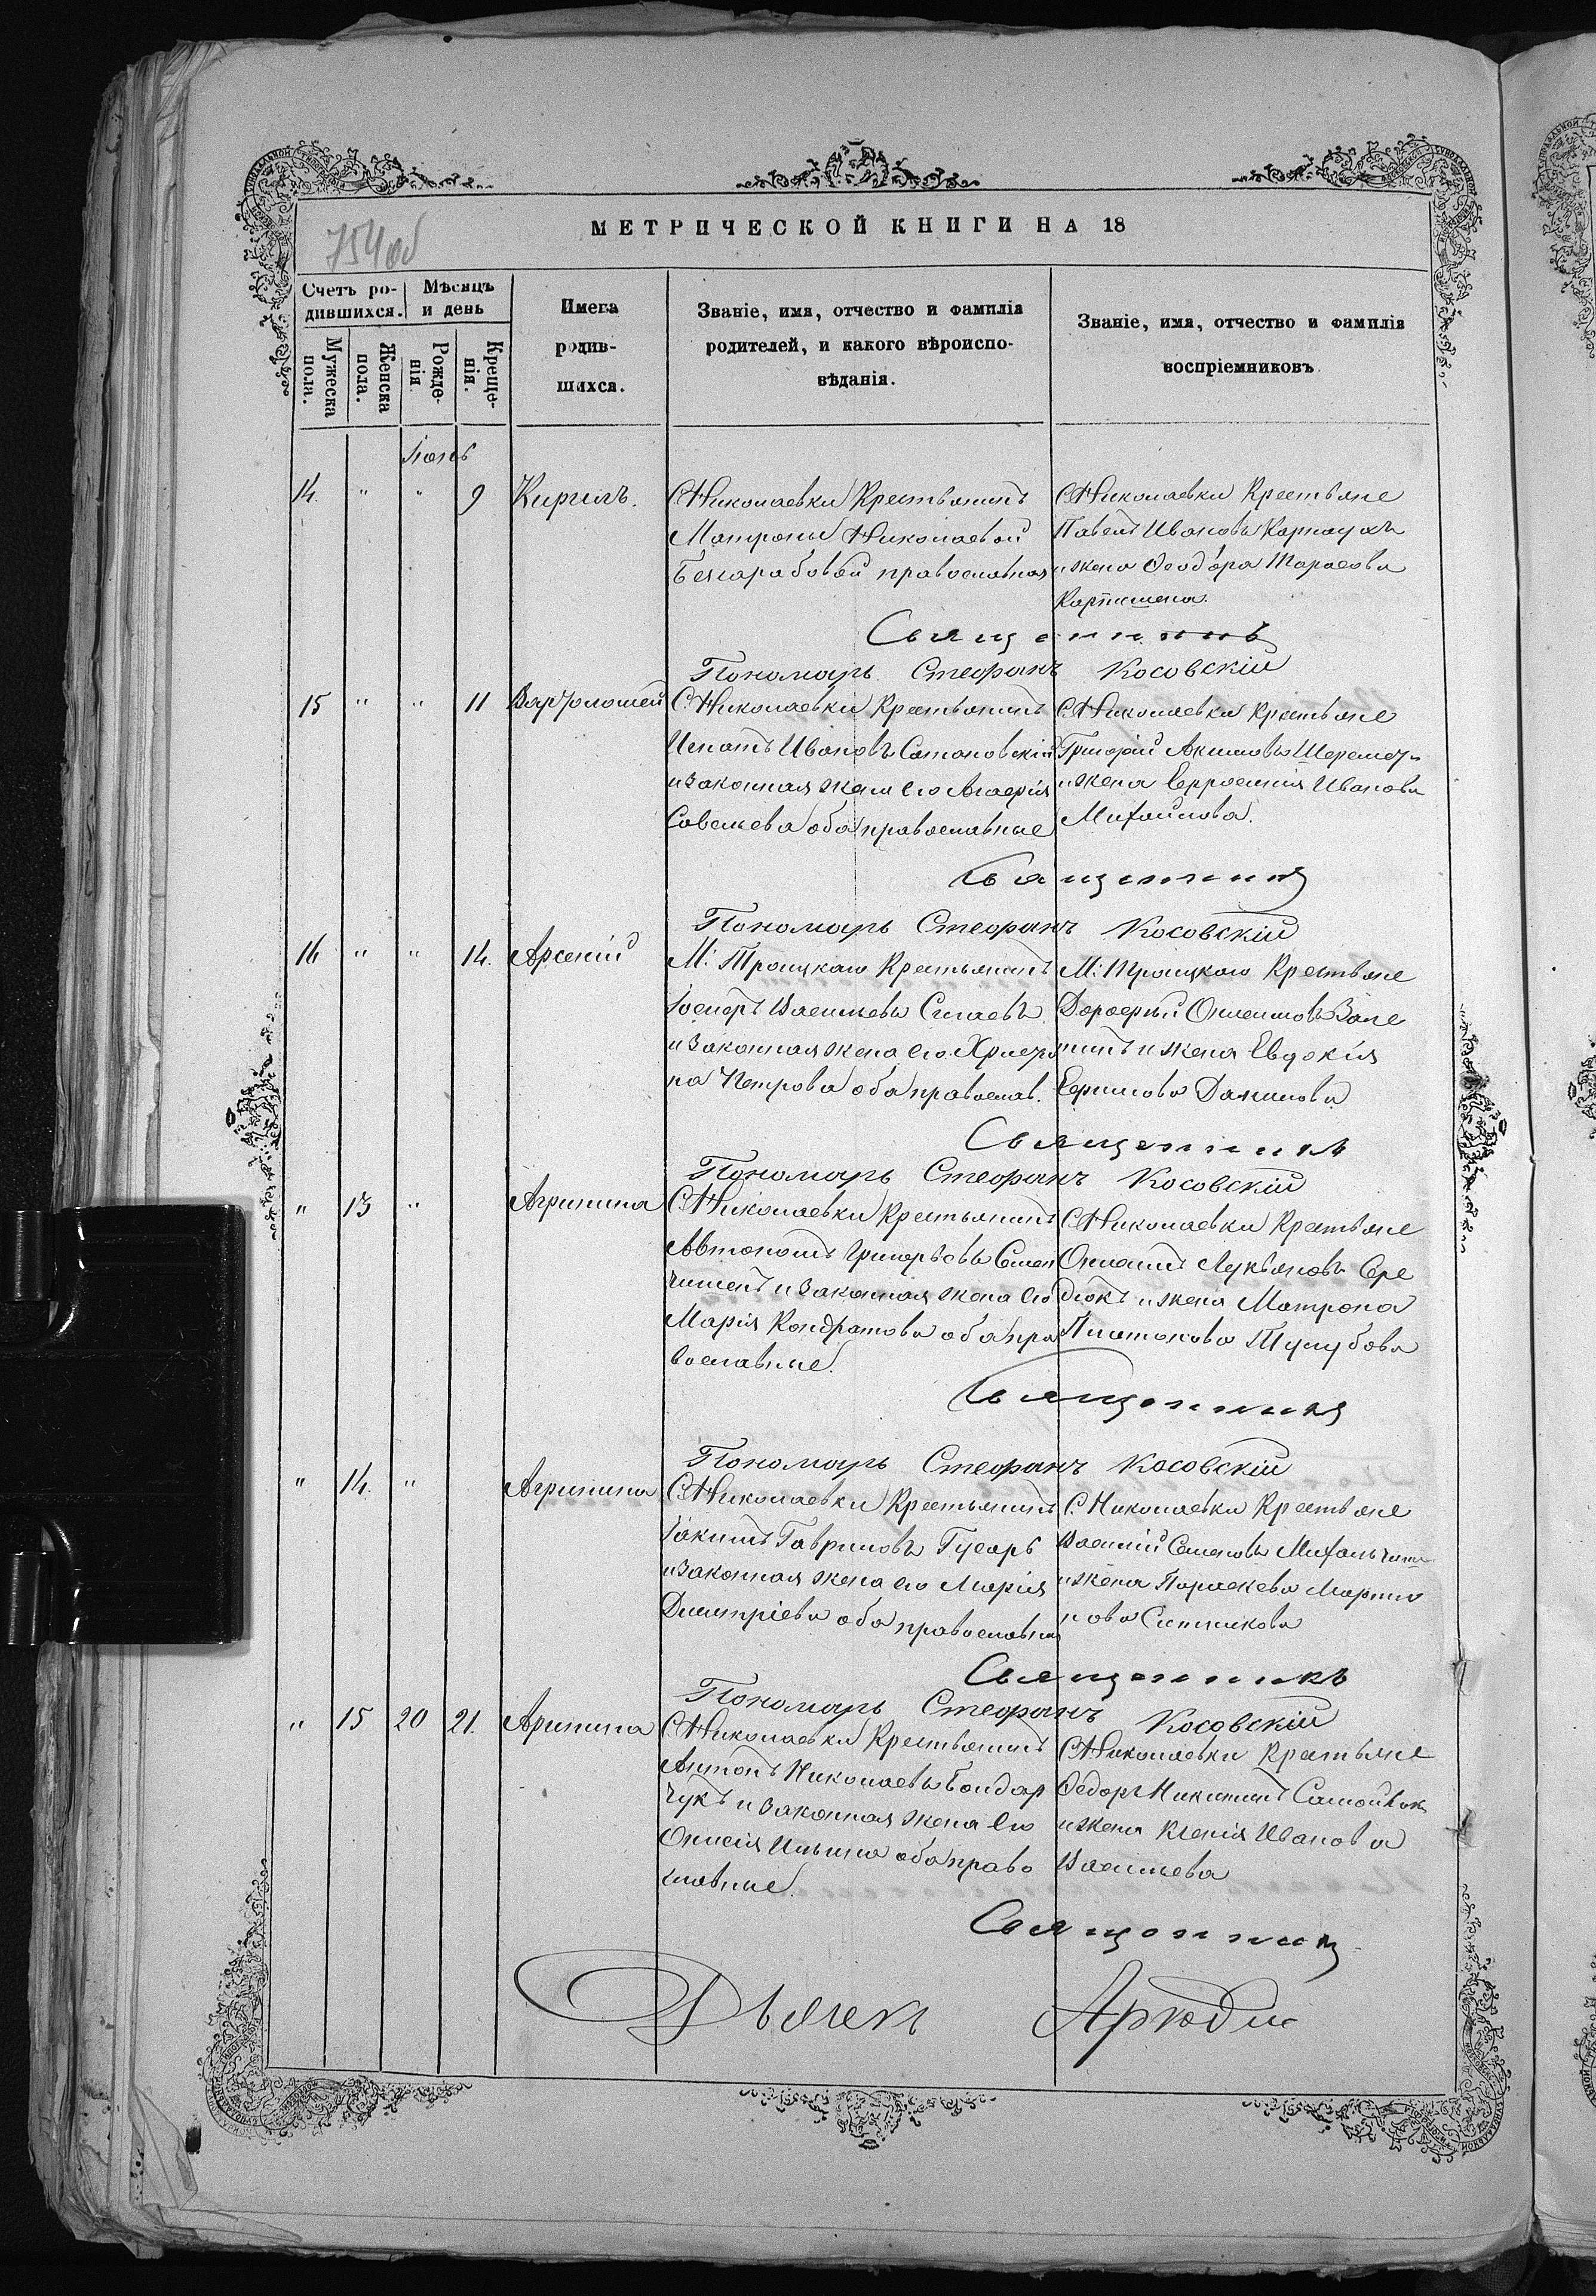 754об
МЕТРИЧЕСКОЙ КНИГИ НА 18
Счетъ родившихся.
Мѣсяцъ и день
Имена родившихся.
Званіе, имя, отчество и фамилія родителей, и какого вѣроисповѣданія.
Званіе, имя, отчество и фамилія воспріемниковъ.
Мужеска пола.
Женска пола.
Рожденія
Крещенія.
Іюнь
14. " " 9 Кирилъ.
С. Николаевки Крестьянинъ
Матроны Николаевой
Бессарабовой православная
С. Николаевки Крестьяне
Павелъ Ивановъ Карнаухъ
и жена Ѳеодора Тарасова
Священникъ
Пономарь Стефанъ Косовскій
15 " " 11 Варѳоломей
С. Николаевки Крестьянинъ
Игнатъ Ивановъ Сатановскій
и законная жена его Агафія
Савельева оба православные
С. Николаевки Крестьяне
Григорій Акимовъ Шеремет
и жена Евфросинія Иванова
Михайлова.
Священникъ
Пономарь Стефанъ Косовскій
16 " " 14. Арсеній
М: Троицкаго Крестьянинъ
Іосифъ Васильевъ Силаевъ
и законная жена его Христи
на Петрова оба православ.
М: Троицкаго Крестьяне
Дорофей Онисимовъ Зале
и жена Евдокія
Ефимова Данилова
Священникъ
Пономарь Стефанъ Косовскій
" 13 " Агрипина
С. Николаевки Крестьянинъ
Автономъ Григорьевъ Семен
и законная жена его
Марія Кондратова оба пра
вославные.
С. Николаевки Крестьяне
Лукьяновъ Сер
дюкъ и жена Матрона
Платонова
Священникъ
Пономарь Стефанъ Косовскій
" 14. " Агрипина
С. Николаевки Крестьянинъ
Іакимъ Гавриловъ Гусаръ
и законная жена его Марія
Димитріева оба православные
С. Николаевки Крестьяне
Василій Семеновъ
и жена Параскева Марти
нова Ситникова
Священникъ
Пономарь Стефанъ Косовскій
" 15 20 21. Агрипина
С. Николаевки Крестьянинъ
Антонъ Николаевъ Бондар
чукъ и законная жена его
Онисія Ильина оба право
славные.
С. Николаевки Крестьяне
Ѳедоръ Никитинъ
и жена Ксенія Иванова
Васильева
Священникъ
Дьячекъ